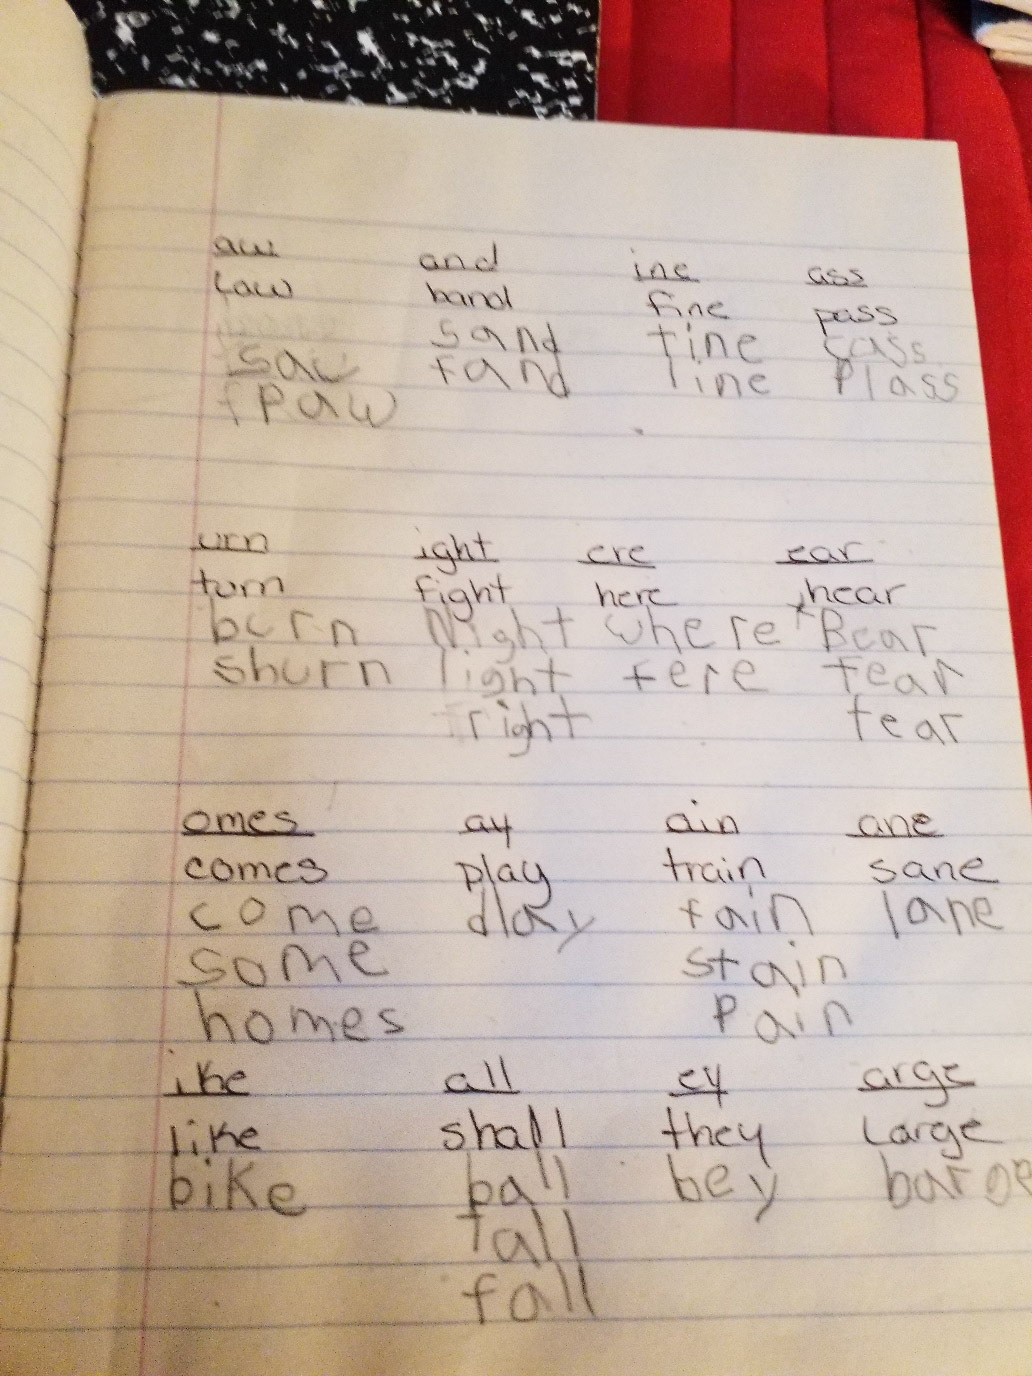 aw and ine ass
law band fine pass
sand tine cass
saw fand line Plass
Paw
urn ight ere ear
turn fight here hear
burn Night where Bear
shurn light fere fear
right tear
omes ay ain ane
comes play train sane
come dlay fain lane
some stain
homes Pain
ike all ey arge
like shall they Large
bike ball bey barge
tall
fall